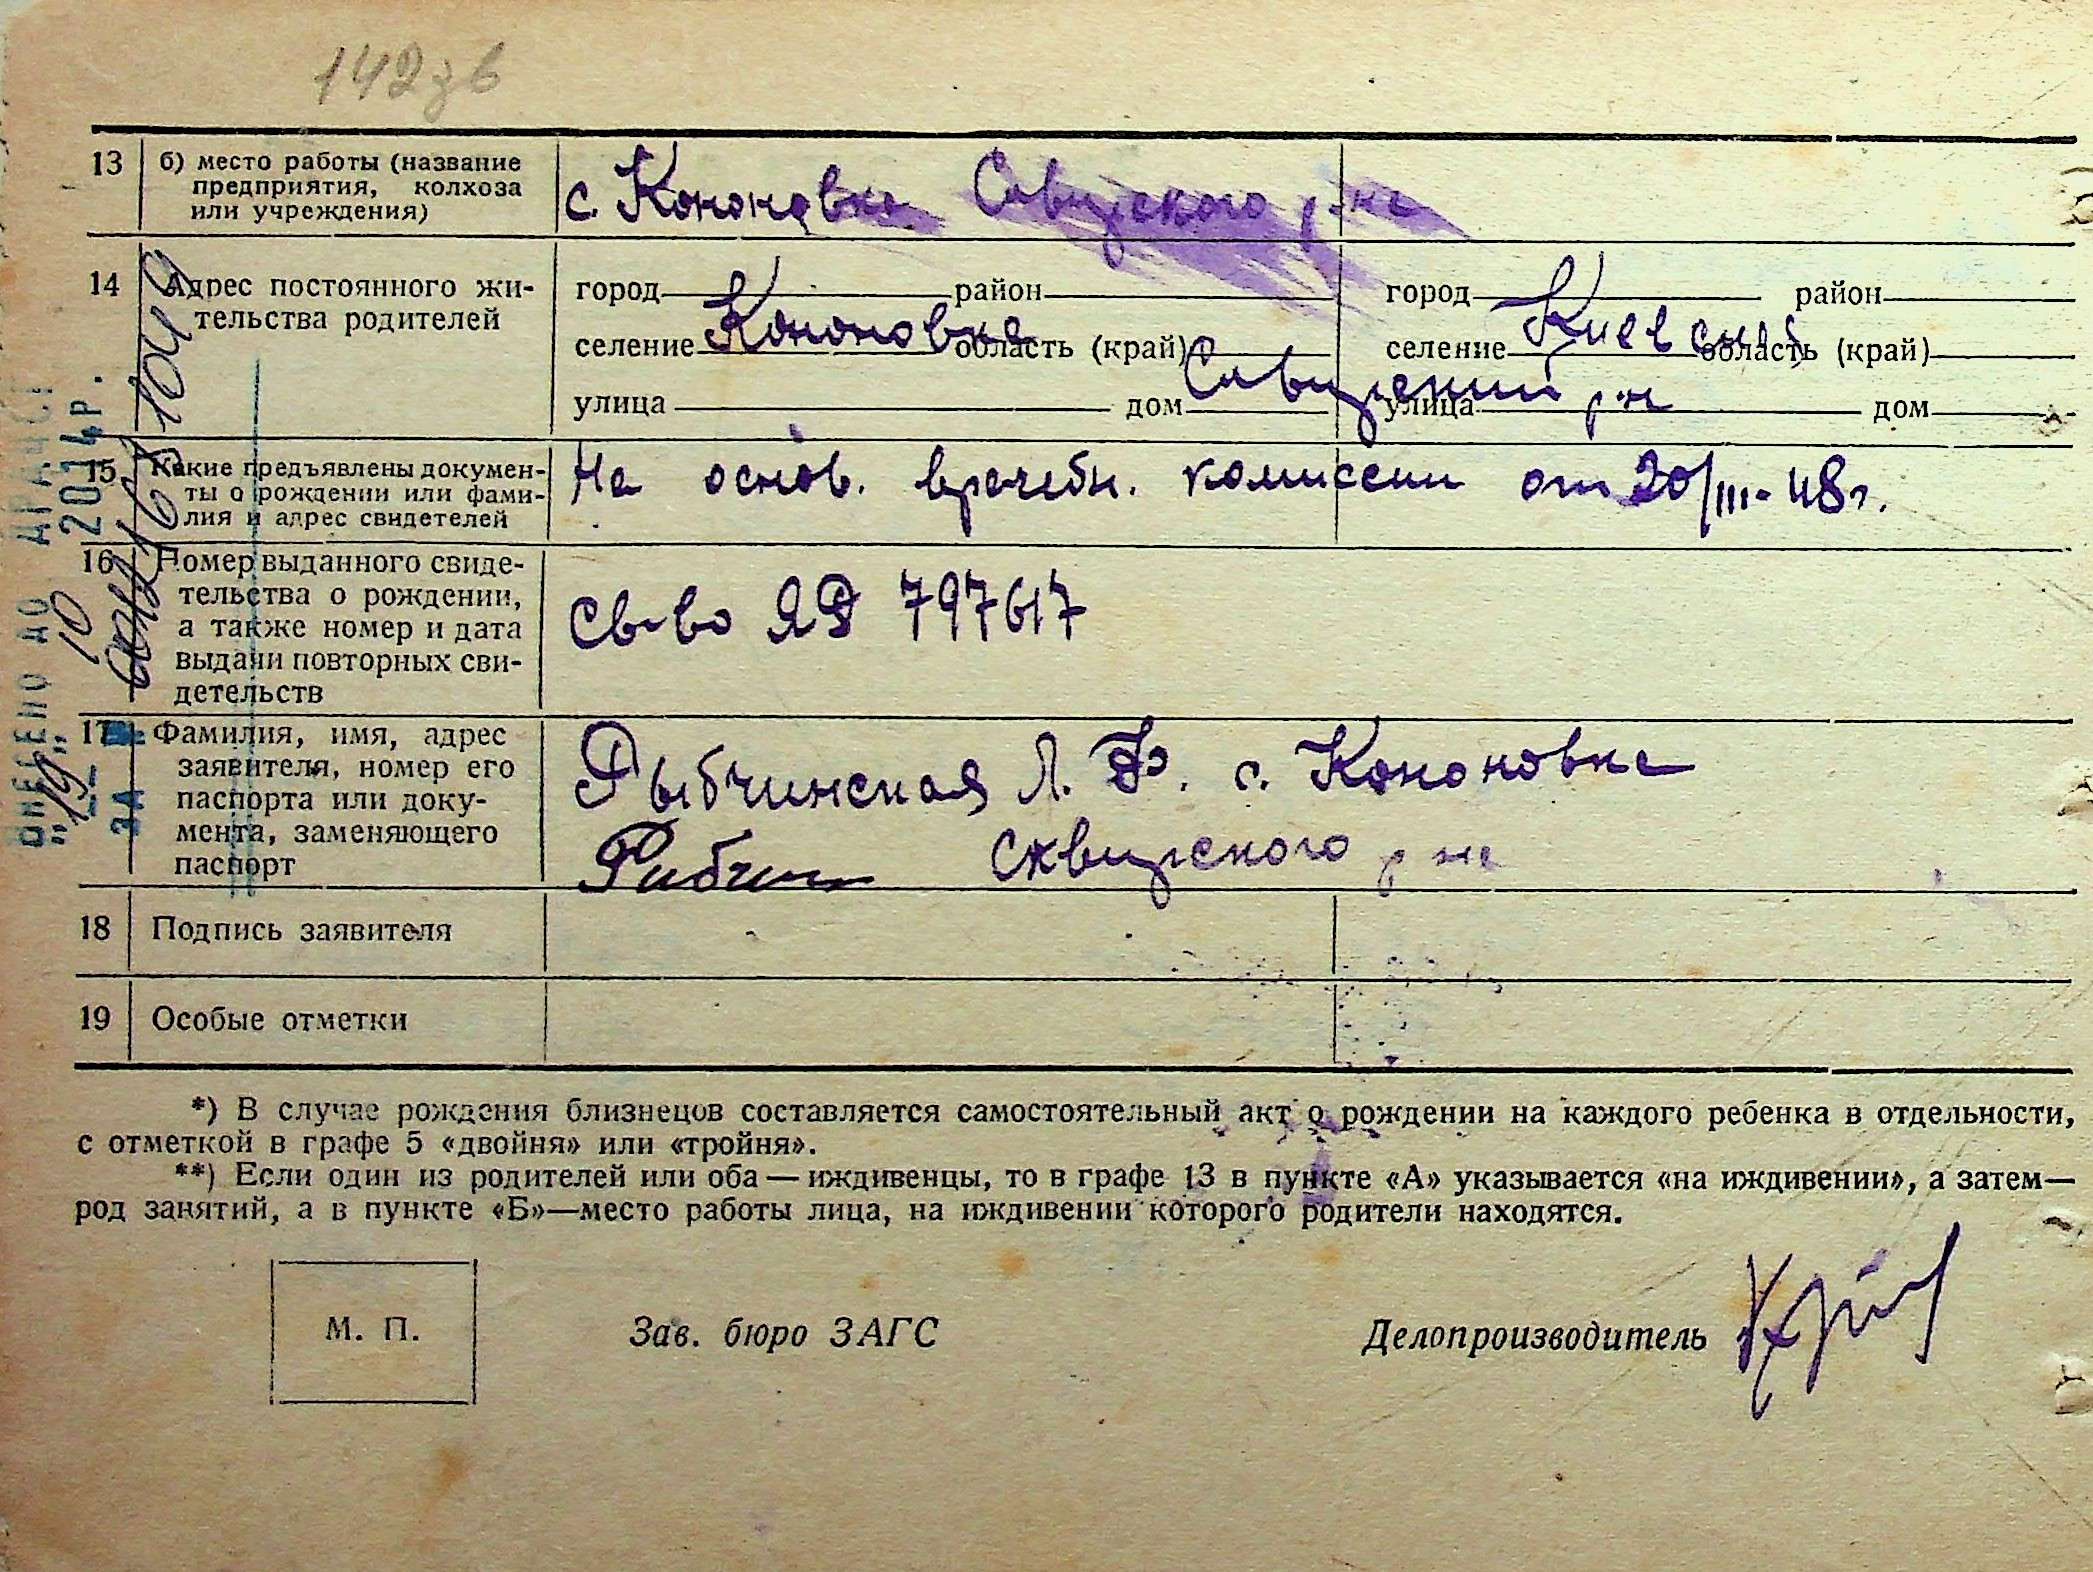 142зв
13 б) место работы (название
предприятия, колхоза
или учреждения)
с. Кононовка Сквирского р-на
14 Адрес постоянного жи-
тельства родителей
город район город район
селение Кононовка область (край) селение Киевская область (край)
улица дом Сквирский р-н улица дом
15 Какие предъявлены докумен-
ты о рождении или фами-
лия и адрес свидетелей
На основ. врачебн. комиссии от 20/III-48г.
16 Номер выданного свиде-
тельства о рождении,
а также номер и дата
выдачи повторных сви-
детельств
св-во ЯД 797617
17 Фамилия, имя, адрес
заявителя, номер его
паспорта или доку-
мента, заменяющего
паспорт
Рыбчинская Л. Ф. с. Кононовка
Рибчин сквирского р-на
18 Подпись заявителя
19 Особые отметки
*) В случае рождения близнецов составляется самостоятельный акт о рождении на каждого ребенка в отдельности,
с отметкой в графе 5 «двойня» или «тройня».
**) Если один из родителей или оба — иждивенцы, то в графе 13 в пункте «А» указывается «на иждивении», а затем—
род занятий, а в пункте «Б»—место работы лица, на иждивении которого родители находятся.
М. П. Зав. бюро ЗАГС Делопроизводитель
ВНЕСЕНО ДО ДРАЦС
"19" 10 2014р.
ЗА № 00216131049